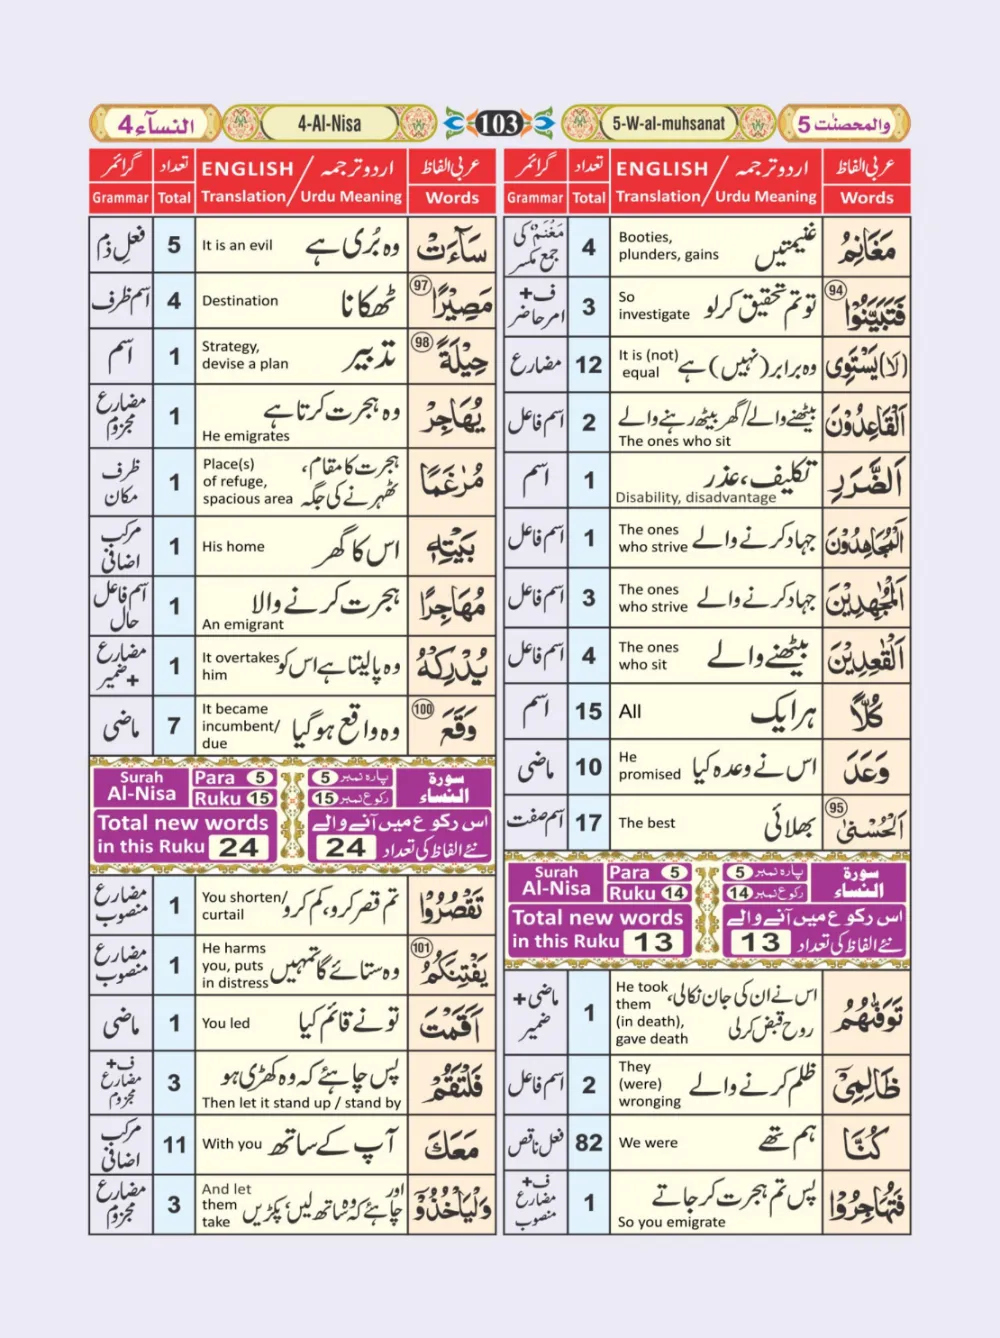 والمحصنٰت 5
5-W-al-muhsanat
103
4-Al-Nisa
النسآء 4
عربی الفاظ
اردو ترجمہ / ENGLISH
تعداد
گرائمر
Words
Translation / Urdu Meaning
Total
Grammar
مَغَانِمُ
غنیمتیں
Booties,
plunders, gains
4
مَغْنَمٌ کی
جمع مکسر
94
فَتَبَيَّنُوْا
تو تم تحقیق کرلو
So
investigate
3
ف+
امر حاضر
(لَا) يَسْتَوِى
وہ برابر (نہیں) ہے
It is (not)
equal
12
مضارع
اَلْقَاعِدُوْنَ
بیٹھنے والے/گھر بیٹھ رہنے والے
The ones who sit
2
اسم فاعل
اَلضَّرَرِ
تکلیف، عذر
Disability, disadvantage
1
اسم
اَلْمُجَاهِدُوْنَ
جہاد کرنے والے
The ones
who strive
1
اسم فاعل
اَلْمُجٰهِدِيْنَ
جہاد کرنے والے
The ones
who strive
3
اسم فاعل
اَلْقٰعِدِيْنَ
بیٹھنے والے
The ones
who sit
4
اسم فاعل
كُلًّا
ہر ایک
All
15
اسم
وَعَدَ
اس نے وعدہ کیا
He
promised
10
ماضی
95
اَلْحُسْنٰى
بھلائی
The best
17
اسم صفت
Surah
Al-Nisa
Para 5
Ruku 14
پارہ نمبر 5
رکوع نمبر 14
سورة
النساء
Total new words
in this Ruku 13
اس رکوع میں آنے والے
نئے الفاظ کی تعداد 13
تَوَفّٰهُمُ
اس نے ان کی جان نکالی،
روح قبض کرلی
He took
them
(in death),
gave death
1
ماضی +
ضمیر
ظَالِمِىْٓ
ظلم کرنے والے
They
(were)
wronging
2
اسم فاعل
كُنَّا
ہم تھے
We were
82
فعل ناقص
فَتُهَاجِرُوْا
پس تم ہجرت کر جاتے
So you emigrate
1
ف+
مضارع
منصوب
عربی الفاظ
اردو ترجمہ / ENGLISH
تعداد
گرائمر
Words
Translation / Urdu Meaning
Total
Grammar
سَآءَتْ
وہ بُری ہے
It is an evil
5
فعلِ ذم
97
مَصِيْرًا
ٹھکانا
Destination
4
اسم ظرف
98
حِيْلَةً
تدبیر
Strategy,
devise a plan
1
اسم
يُهَاجِرْ
وہ ہجرت کرتا ہے
He emigrates
1
مضارع
مجزوم
مُرٰغَمًا
ہجرت کا مقام،
ٹھہرنے کی جگہ
Place(s)
of refuge,
spacious area
1
ظرف
مکان
بَيْتِهٖ
اس کا گھر
His home
1
مرکب
اضافی
مُهَاجِرًا
ہجرت کرنے والا
An emigrant
1
اسم فاعل
حال
يُدْرِكْهُ
وہ پالیتا ہے اس کو
It overtakes
him
1
مضارع
+ ضمیر
100
وَقَعَ
وہ واقع ہوگیا
It became
incumbent/
due
7
ماضی
Surah
Al-Nisa
Para 5
Ruku 15
پارہ نمبر 5
رکوع نمبر 15
سورة
النساء
Total new words
in this Ruku 24
اس رکوع میں آنے والے
نئے الفاظ کی تعداد 24
تَقْصُرُوْا
تم قصر کرو، کم کرو
You shorten/
curtail
1
مضارع
منصوب
101
يَفْتِنَكُمُ
وہ ستائے گا تمہیں
He harms
you, puts
in distress
1
مضارع
منصوب
اَقَمْتَ
تو نے قائم کیا
You led
1
ماضی
فَلْتَقُمْ
پس چاہئے کہ وہ کھڑی ہو
Then let it stand up / stand by
3
ف+
مضارع
مجزوم
مَعَكَ
آپ کے ساتھ
With you
11
مرکب
اضافی
وَلْيَاْخُذُوْٓا
اور
چاہئے کہ وہ ساتھ لیں، پکڑیں
And let
them
take
3
مضارع
مجزوم